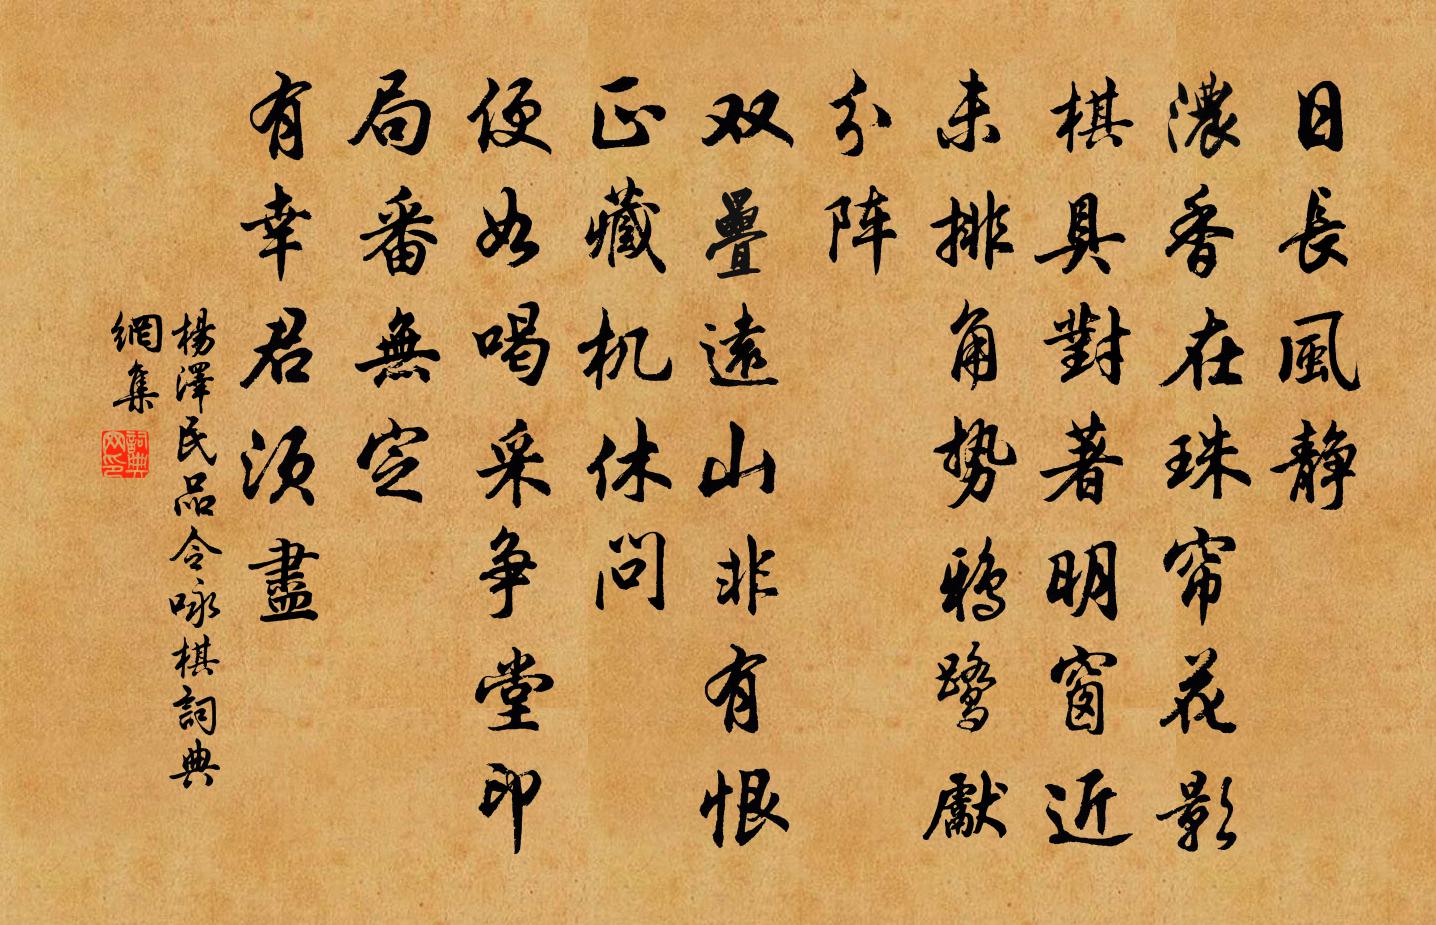 日長風静
濃香在珠帘花影
棋具對著明窗近
未排角势鴉鹭獻
分阵
双疊遠山非有恨
正藏机休问
便如喝采争堂印
局番無定
有幸君须盡
楊澤民品令咏棋詞典
網集
詞典
网印